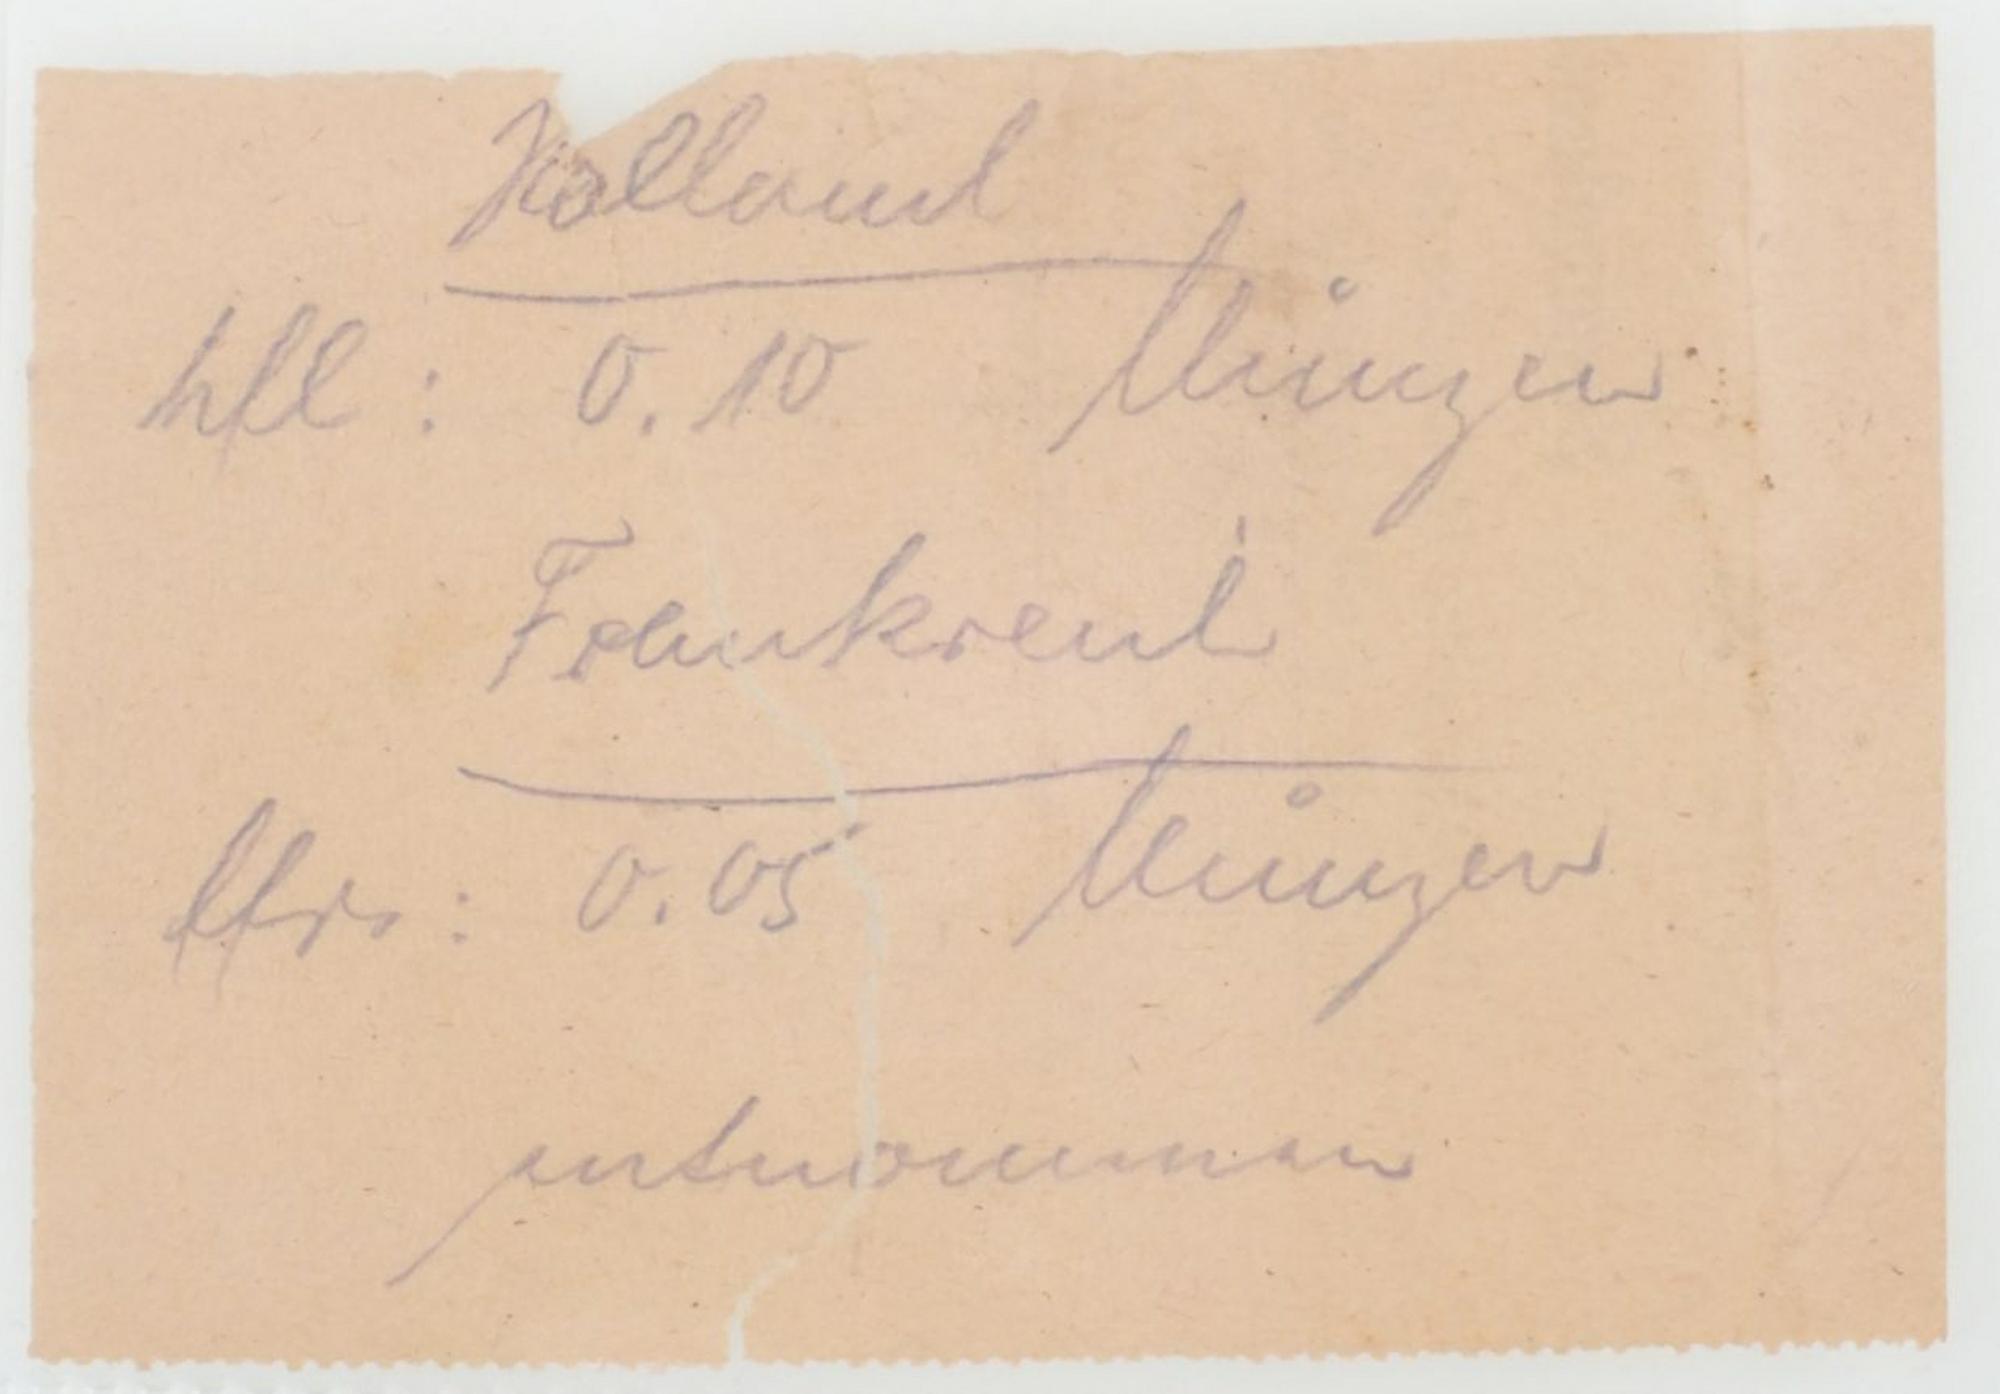 Holland
hfl: 0.10 Münzen
Frankreich
ffrs: 0.05 Münzen
entnommen